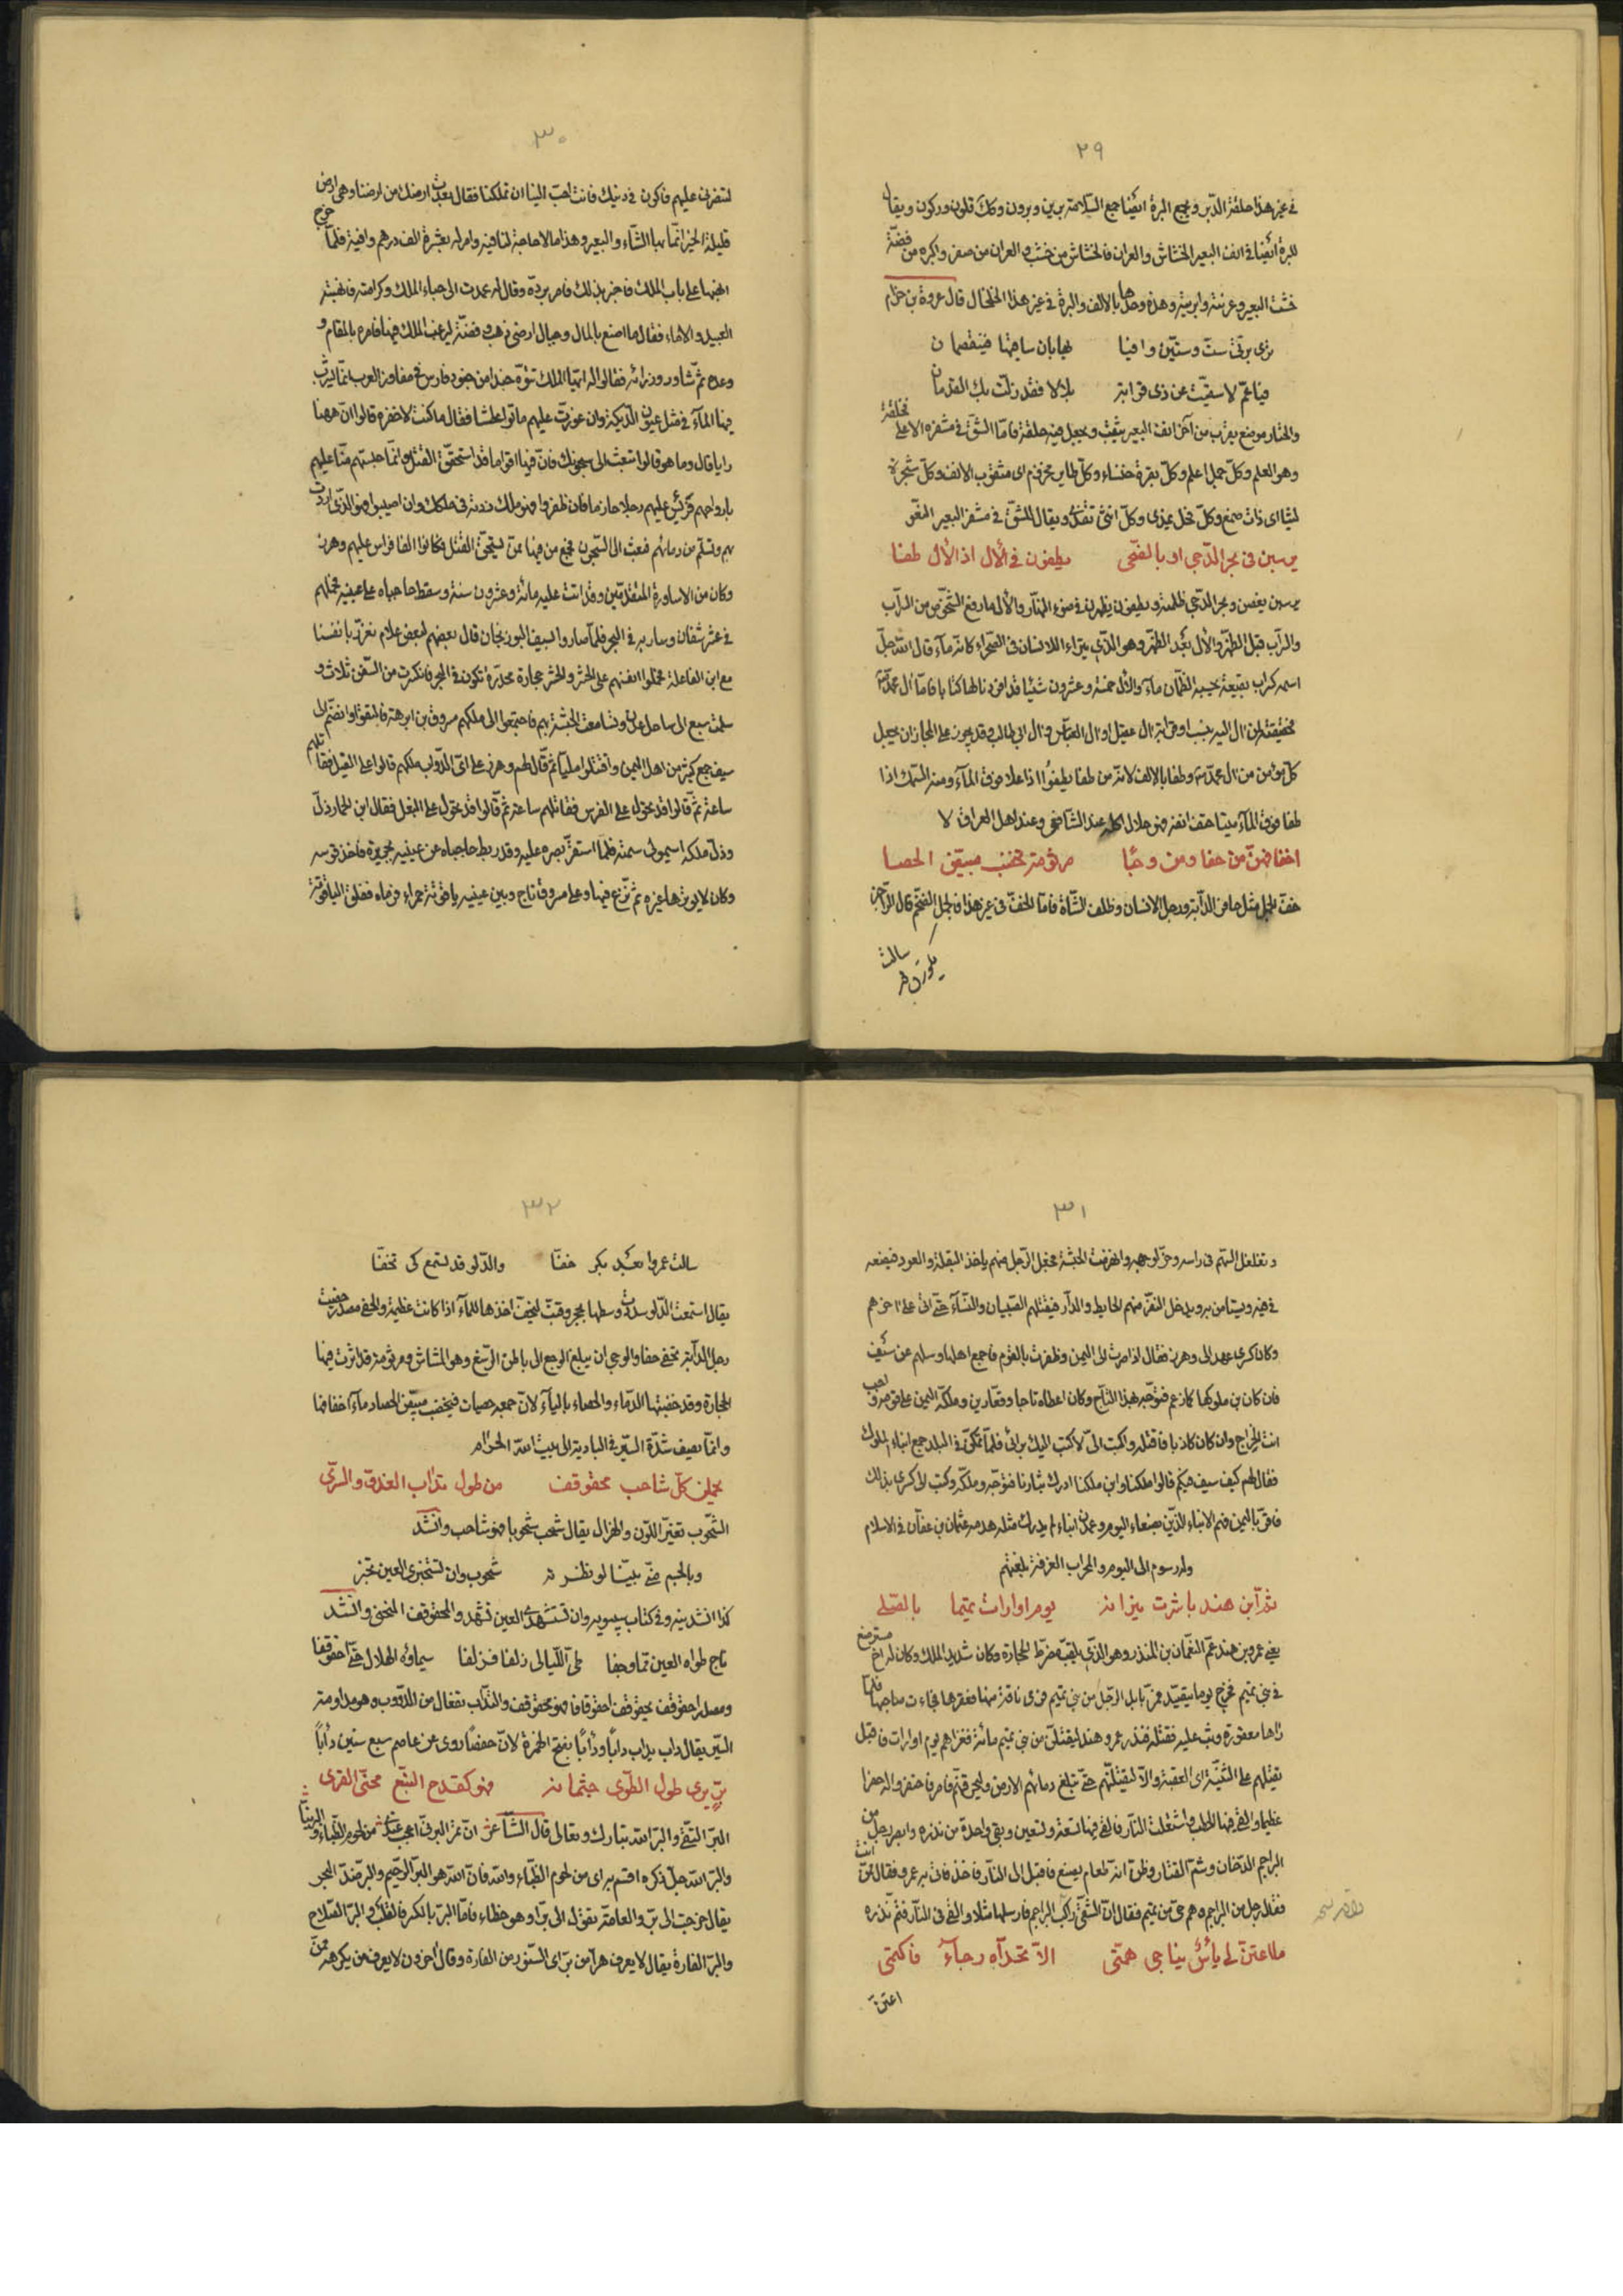 ٢٩
في غير هذا حلقة الدبر وتجمع البرة ايضا جمع السلامة برين وبرون وكذلك قلون وركون ويقال
للبرة ايضا في انف البعير الخشاش والعران فالخشاش من خشب والعران من صفر والبره من فضة
خششت البعير وعرنته وابريته وهذه وحدها بالالف والبرة في غير هذا الخلخال قال عروة بن حزام
يزى برتي ست وستين وافيا بهابان ساقيها فينفصمان
فياعم لاسقيت عن ذي قرابة بلالا فقد زلت بك القدمان
والختار موضع يقرب من آخر انف البعير يثقب ويجعل فيه حلقة فاما الشق في مشفره الاعلى
وهو العلم وكل جمل اعلم وكل بقرة خنساء وكل طاير مخرم اي مثقوب الانف وكل شجرة
لثيا اي ذات صمغ وكل فحل يمذي وكل انثى تقذي ويقال للشق في مشفر البعير
يرسبن في بحر الدجى او بالضحى يطفون في الآل اذا الآل طفا
يرسبن يغصن وبحر الدجى ظلمته ويطفون يظهرن في ضوء النهار والآل ما رفع الشخوص من السراب
والسراب قبل الظهر والآل بعد الظهر وهو الذي يتراءا للانسان في الصحراء كانه ماء قال الله جل
اسمه كسراب بقيعة يحسبه الظمآن ماء والآل خمسة وعشرون شيئا قد افردنا لها كتابا فاما آل محمد
فحقيقة من آل اليه بنسب او قرابة آل عقيل او آل العباس وآل ابي طالب وقد يجوز على المجاز ان يجعل
كل مؤمن من آل محمد وطفا بالالف لانه من طفا يطفوا اذا علا فوق الماء ومنه السمك اذا
طفا فوق الماء ميتا حتف انفه فهو حلال اكله عند الشافعي وعند اهل العراق لا
اخفافهن من حفا ومن وجا مرثومة تخضب مبيض الحصا
خف الجمل مثل حافر الدابة ورجل الانسان وظلف الشاة فاما الخف في غير هذا فالجمل الضخم قال الراجز
سالت
٣٠
لتنصرني عليهم فاكون في دينك فانت احب الينا ان تملكنا فقال بعدت ارضك من ارضنا وهي ارض
قليلة الخير انما بها الشاء والبعير وهذا ما لا حاجة لنا فيه وامر له بعشرة الف درهم وافية فلما خرج
انهبها على باب الملك فاخبر بذلك فامر برده وقال له عمدت الى حباء الملك وكرامته فانهبته
العبيد والاماء فقال ما اصنع بالمال وجبال ارضي ذهب وفضة ليرغب الملك فيها فامره بالمقام و
وعده ثم شاور وزرائه فقالوا له ايها الملك تقوه جندا من جنود فارس في مفاوز العرب انما يشرب
فيها الماء في مثل عيون الديكة وان عورت عليهم ماتوا عطشا فقال ما كنت لاخفره قالوا ان ههنا
رايا قال وما هو قالوا تبعث الى سجونك فان فيها اقواما قد استحقوا القتل وانما حبستهم منا عليهم
بارواحهم فتؤمر عليهم رجلا حازما فان ظفروا فهو ملك زدته في ملكك وان اصيبوا فهو الذي اردت
بهم وتسلم من دمائهم فبعث الى السجون فجمع من فيها ممن يستحق القتل فكانوا الفا فراس عليهم وهرز
وكان من الاساورة المتقدمين وقد اتت عليه مائة وعشرون سنة وسقط حاجباه على عينيه فحملهم
في عشر سفائن وسار بهم في البحر فلما صاروا بسيف البحر قال بعضهم لبعض علام نغرر بانفسنا
مع ابن الفاعلة
سلمت سبع الى ساحل عدن وتسامعت الحبشة بهم فاجتمعوا الى ملكهم مسروق بن ابرهة فالتقوا وانضم الى
سيف جمع كثير من اهل اليمن واقتتلوا مليا ثم قال لهم وهرز على اي الدواب ملكهم قالوا على الفيل فقاتلهم
ساعة ثم قالوا قد تحول على الفرس فقاتلهم ساعة ثم قالوا قد تحول على البغل فقال ابن الحمار ذل
وذل ملكه اسمو لي سمته فلما استقر بصره عليه وقد ربط حاجباه عن عينيه بحريرة فاخذ قوسه
وكان لا يوترها غيره ثم نزع فيها وعلى مسروق تاج وبين عينيه ياقوتة حمراء فرماه ففلق الياقوتة
٣١
وتغلغل السهم في راسه وخر لوجهه وانهزمت الحبشة فجعل الرجل منهم ياخذ البقلة والعود فيضعه
في فيه ويستامن به ويدخل النفر منهم الحايط والدار فيقتلهم الصبيان والنساء حتى اتى على اخرهم
وكان كسرى عهد الى وهرز فقال اذا صرت الى اليمن وظفرت بالقوم فاجمع اهلها وسلهم عن سيف
فان كان بن ملوكها كما زعم فتوجه بهذا التاج وكان اعطاه تاجا وقفازين وملكه اليمن
انت الخراج وان كان كاذبا فاقتله واكتب الي لاكتب اليك برائي فلما تمكن في البلد جمع ابناء الملوك
فقال لهم كيف سيف فيكم قالوا ملكنا وابن ملكنا ادرك بثارنا فتوجه وملكه وكتب الى كسرى بذلك
فاقر باليمن فهم الابناء الذين بصنعاء اليوم وغمدان ابناء لم يدرك مثله هدمه عثمان بن عفان في الاسلام
وله رسوم الى اليوم والمحراب الغرفة بلغتهم
ثم ابن هند باشرت نيرانه يوم اوارات تميما بالصلى
يعني عمرو بن هند عم النعمان بن المنذر وهو الذي يلقب مضرط الحجارة وكان شديد الملك وكان له اخ مسترضع
في بني تميم فخرج يوما يتصيد فمر بابل لرجل من بني تميم فرمى ناقة منها فعقرها فجاءت صاحبها فلما
راها معقورة وثب عليه فقتله فنذر عمرو هند ليقتلن من بني تميم مائة فغزاهم يوم اوارات فاقبل
يقتلهم على الثنية اي العقبة وآلا ليقتلنهم حتى تبلغ دمائهم الارض وليحرقنهم فامر فاحتفر واله حفرا
عظيما والقى فيها الحطب واشعلت النار فالقى فيها تسعة وتسعين وبقي واحدة من نذره وابصر رجل من
البراجم الدخان وشم القتار وظن انه طعام يصنع فاقبل الى النار فاخذ فاتي به عمرو فقال ممن انت
فقال رجل من البراجم وهم حي من تميم فقال ان الشقي راكب البراجم فارسلها مثلا والقى في النار فتم نذره
ما اعتن لي يأس يناجي همتي الا تحداه رجاء فاكتمى
اعتن
٣٢
سالت عمروا بعد بكر خفا والدلو قد تسمع كي تخفا
يقال اسمعت الدلو شددت وسطها بحبل وقنب ليخف اخذها للماء اذا كانت عظيمة والحفى مصدر حفيت
رجل الدابة تحفى حفا والوجى ان يبلغ الوجع الى باطن الرسغ وهو المشاش ومرثومة قد اثرت فيها
الحجارة وقد خضبتها الدماء والحصاء بالياء لان جمعه حصيات فتخضب مبيض الحصا دماء اخفافها
وانما يصف شدة السير في البادية الى بيت الله الحرام
يحملن كل شاحب محقوقف من طول تداب الغدو والسرى
الشحوب تغير اللون والهزال يقال شحب شحوبا فهو شاحب وانشد
وبالجسم مني بينا لو نظرته شحوب وان تستخبري العين تخبر
كذا انشدنيه وفي كتاب سيبويه وان تستشهدي العين تشهد والمحقوقف المنحني وانشد
ناج طواه الاين مما وجفا طي الليالي زلفا فزلفا سماوة الهلال حتى احقوقفا
ومصدر احقوقف يحقوقف احقوقافا فهو محقوقف والتداب تفعال من الدؤوب وهو مداومة
السير يقال داب يداب دابا ودأبا بفتح الهمزة لان حفصا روى عن عاصم سبع سنين دأبا
بر برى طول الطوى جثمانه فهو كقدح النبع محني القرى
البر التقي والبر الله تبارك وتعالى قال الشاعر
والبر الله جل ذكره اقسم به اي من لحوم الظباء والله فان الله هو البر الرحيم والبر ضد البحر
يقال خرجت الى بر والعامة تقول الى برا وهو خطاء فاما البر بالكسر فالقلب والبر الصلاح
والبر الفارة يقال لا يعرف هرا من بر اي السنور من الفارة وقال اخرون لا يعرف من يكرهه ممن